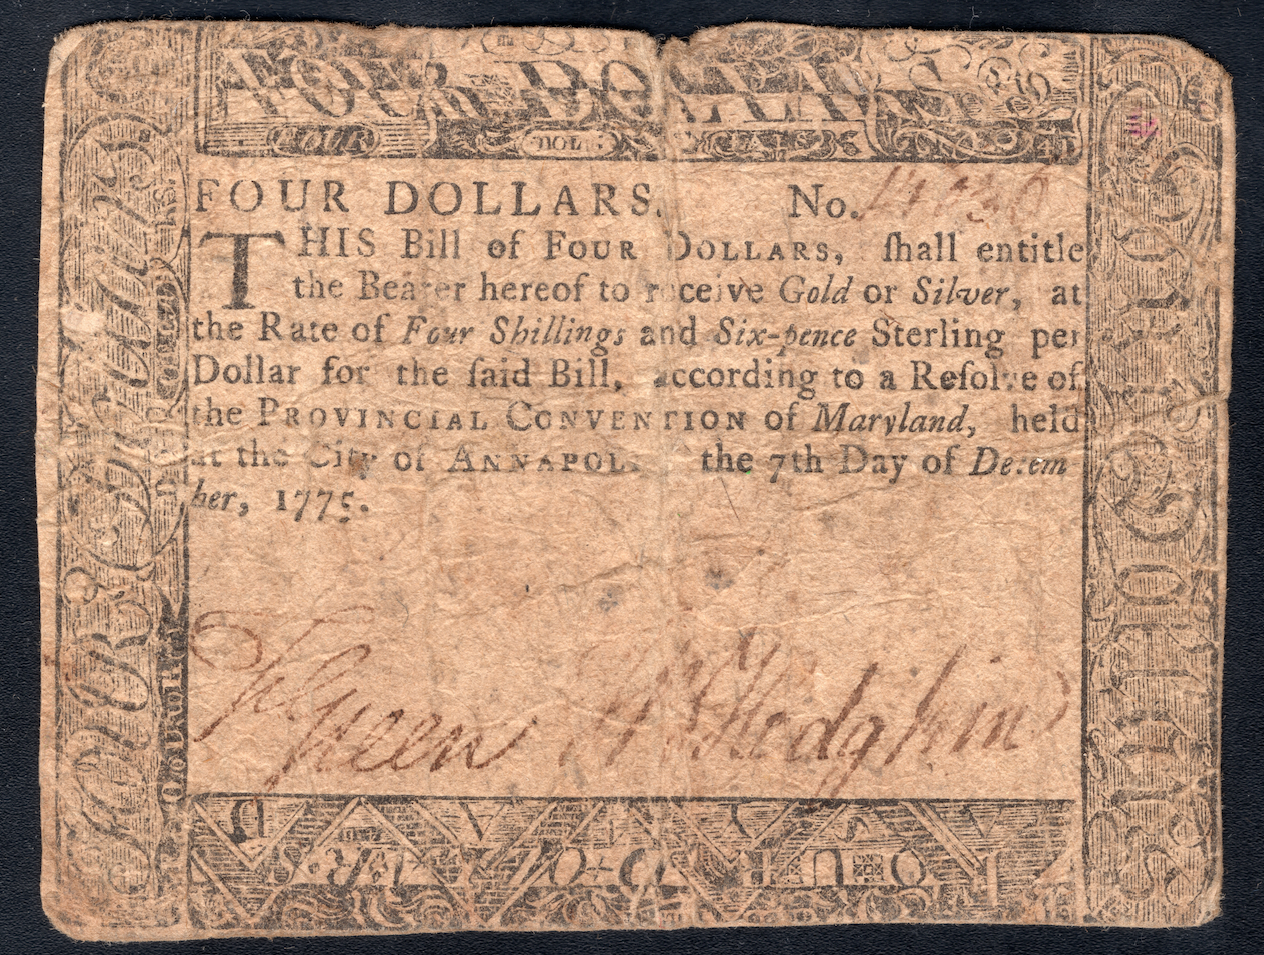 FOUR DOLLARS
FOUR DOL
FOUR DOLLARS. No.
THIS Bill of FOUR DOLLARS, ſhall entitle
the Bearer hereof to receive Gold or Silver, at
the Rate of Four Shillings and Six-pence Sterling per
Dollar for the ſaid Bill, according to a Reſolve of
the PROVINCIAL CONVENTION of Maryland, held
at the City of ANNAPOLIS the 7th Day of Decem
ber, 1775.
Green Hodgkin
FOUR DOLLARS
FOUR DOLLARS
FOUR DOLLARS